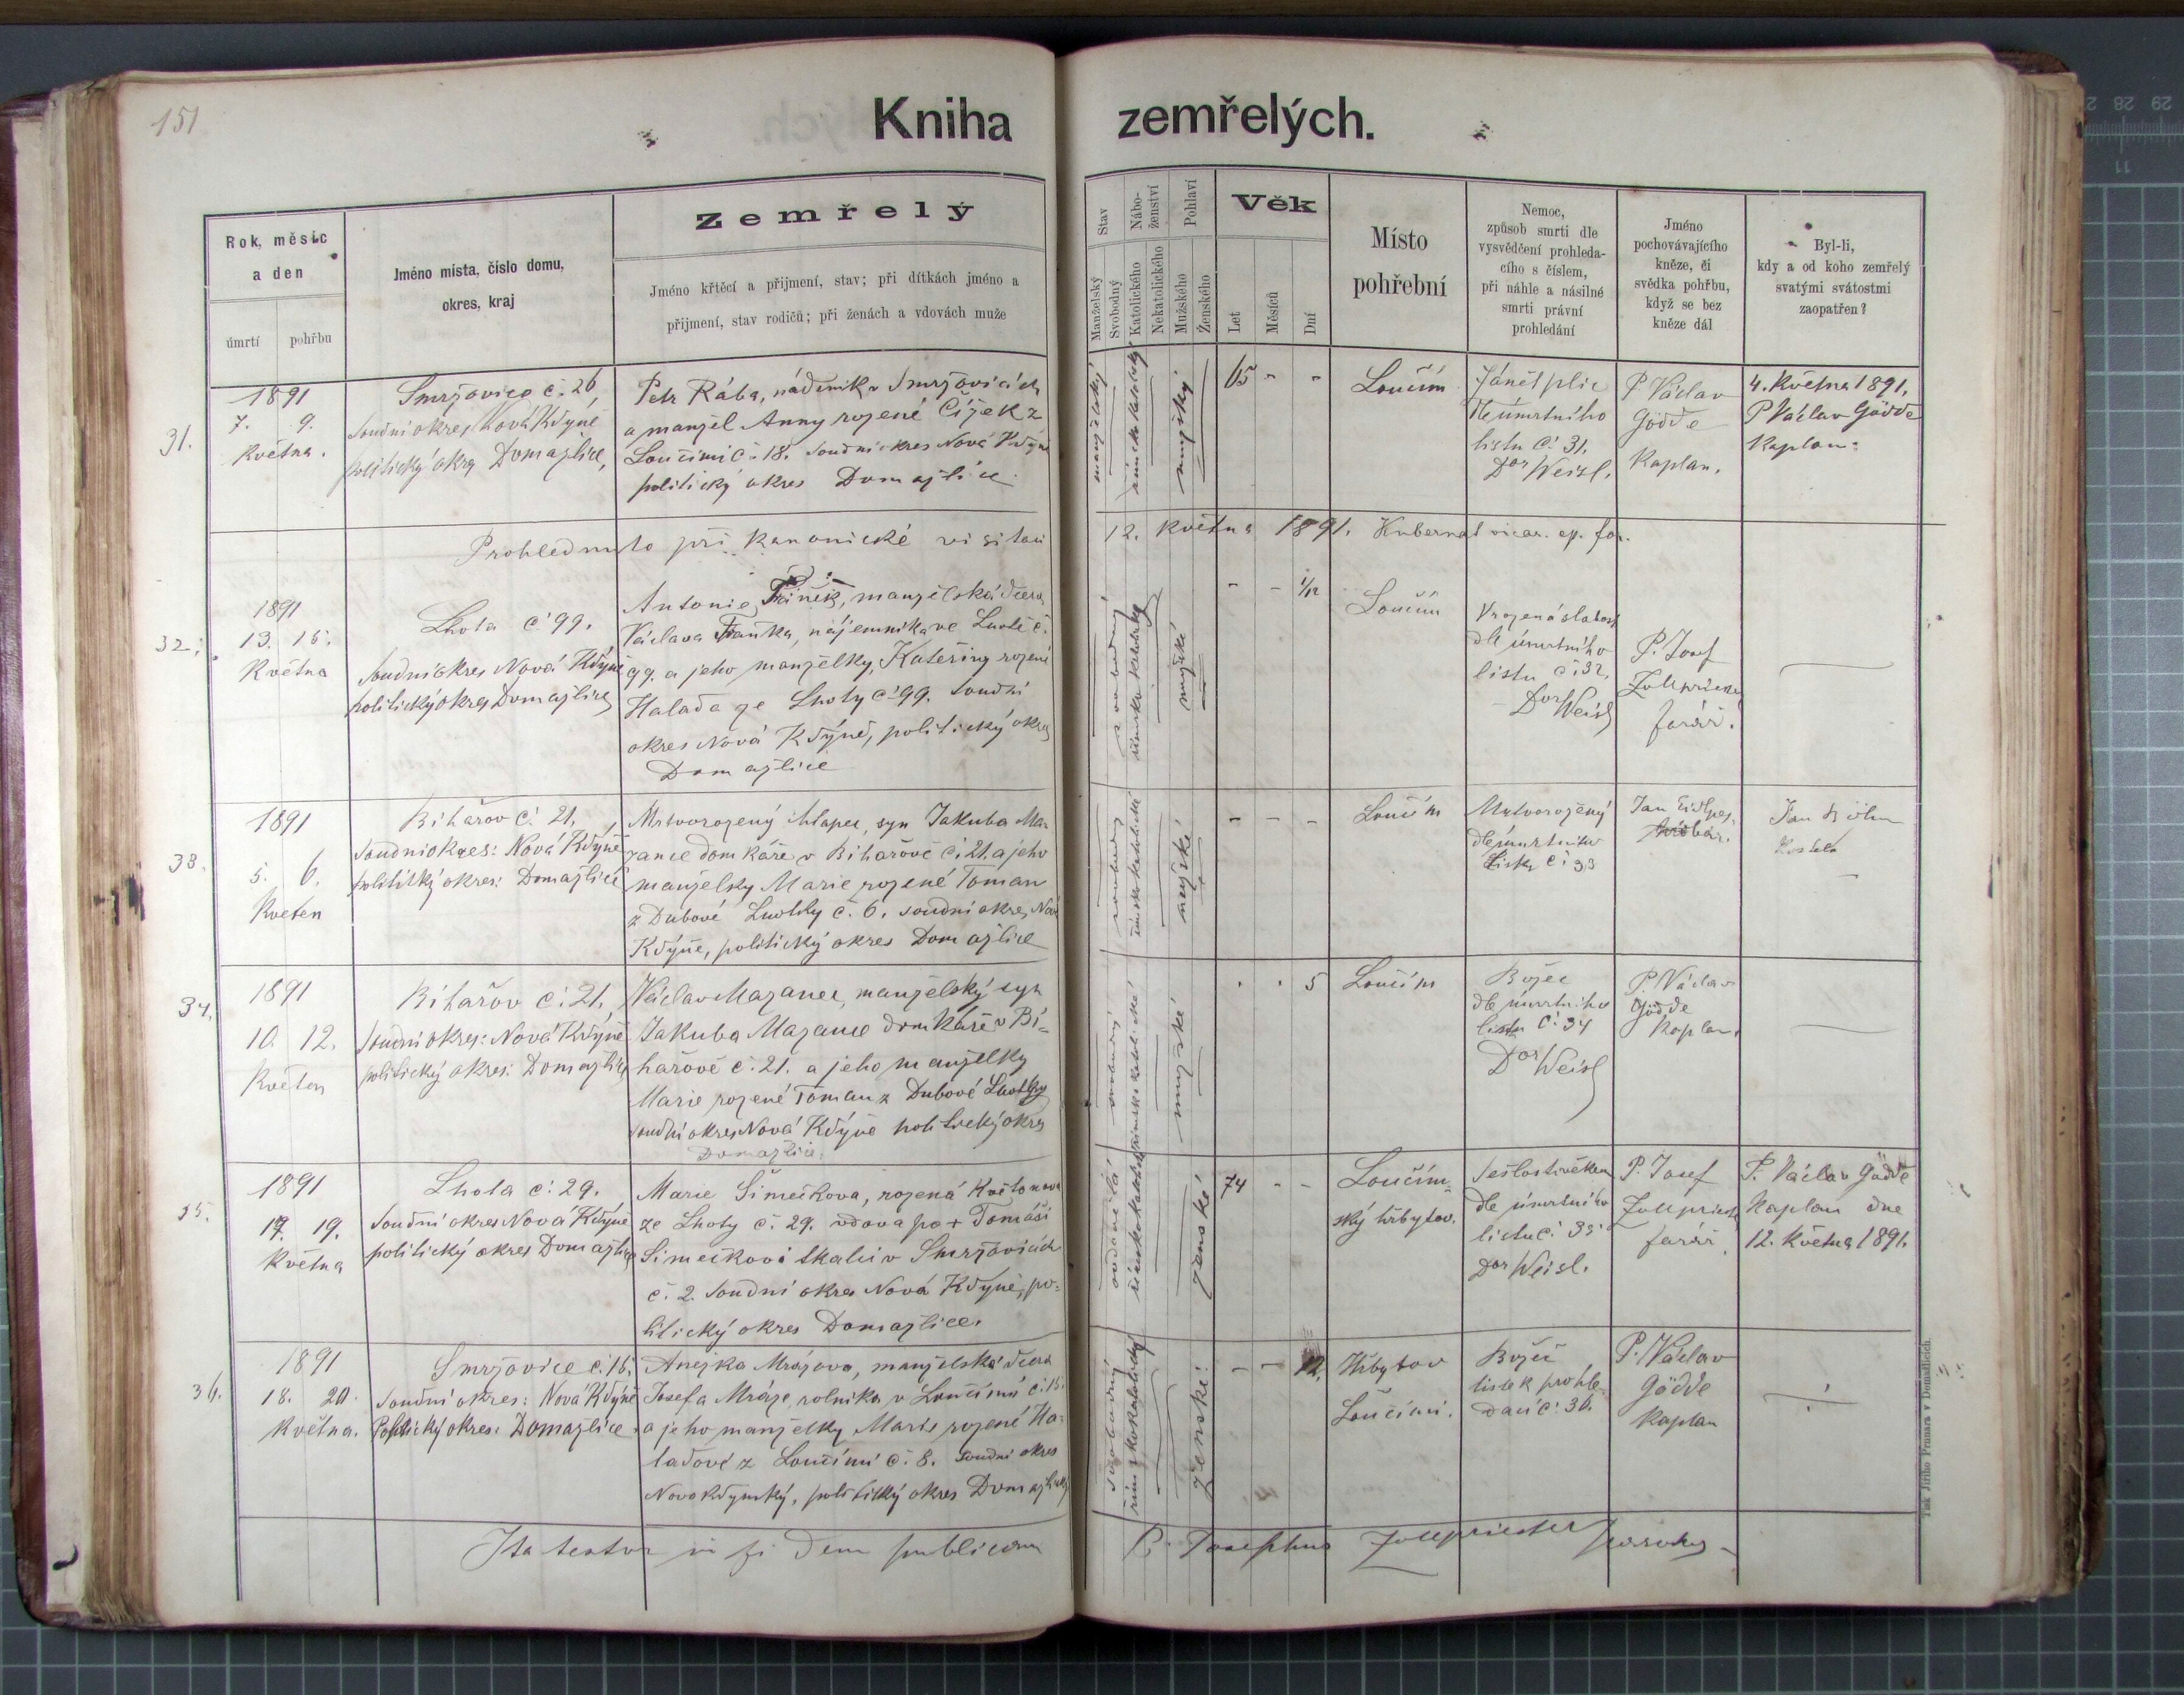 151
Kniha zemřelých.
Rok, měsíc
a den
úmrtí
pohřbu
Jméno místa, číslo domu,
okres, kraj
Zemřelý
Jméno křtěcí a přijmení, stav; při dítkách jméno a
přijmení, stav rodičů; při ženách a vdovách muže
Stav
Manželský
Svobodný
Nábo-
ženství
Katolického
Nekatolického
Pohlaví
Mužského
Ženského
Věk
Let
Měsíců
Dní
Místo
pohřební
Nemoc,
způsob smrti dle
vysvědčení prohleda-
cího s číslem,
při náhle a násilné
smrti právní
prohledání
Jméno
pochovávajícího
kněze, či
svědka pohřbu,
když se bez
kněze dál
Byl-li,
kdy a od koho zemřelý
svatými svátostmi
zaopatřen?
31.
1891
7. 9.
Května.
Smržovice č. 26,
soudní okres Nová Kdyně
politický okres Domažlice,
Petr Rába, nádeník v Smržovicích
a manžel Anny rozené Čížek z
Loučimi č. 18. soudní okres Nová Kdyně
politický okres Domažlice.
manželský
římsko katolický
mužský
65 - -
Loučim
Zánět plic
dle úmrtního
listu č. 31.
Dor Weisl.
P. Václav
Gödde
Kaplan.
4. Května 1891.
P. Václav Gödde
Kaplan.
Prohlednuto při kanonické visitaci
12. května 1891. Kubernat vicar. ep. for.
32.
1891
13. 15.
Května
Lhota č. 99.
soudní okres Nová Kdyně
politický okres Domažlice
Antonie, manželská dcera
Václava, nájemníka ve Lhotě č.
99. a jeho manželky, Kateřiny rozené
Halada ze Lhoty č. 99. soudní
okres Nová Kdyně, politický okres
Domažlice
svobodný
římsko katolický
mužské
- - 1/12
Loučim
Vrozená slabost
dle úmrtního
listu č. 32,
Dor Weisl
P. Josef
Zollpriester
farář.
33.
1891
5. 6.
Květen
Bihařov č. 21.
soudní okres: Nová Kdyně
politický okres: Domažlice
Mrtvorozený chlapec, syn Jakuba Ma-
zance domkáře v Bihařově č. 21. a jeho
manželky Marie rozené Toman
z Dubové Lhotky č. 6. soudní okres Nová
Kdyně, politický okres Domažlice
svobodný
římsko katolické
mužské
- - -
Loučim
Mrtvorozený
dle úmrtního
listu č. 33
Jan
hrobař.
Jan
34.
1891
10. 12.
Květen
Bihařov č. 21.
soudní okres: Nová Kdyně
politický okres: Domažlice
Václav Mazanec, manželský syn
Jakuba Mazance domkáře v Bi-
hařově č. 21. a jeho manželky
Marie rozené Toman z Dubové Lhotky
soudní okres Nová Kdyně politický okres
Domažlice.
svobodný
římsko katolické
mužské
. . 5
Loučim
Božec
dle úmrtního
listu č. 34
Dor Weisl
P. Václav
Gödde
Kaplan.
35.
1891
17. 19.
Května
Lhota č. 29.
soudní okres Nová Kdyně
politický okres Domažlice
Marie Šimečkova, rozená Květonova
ze Lhoty č. 29. vdova po + Tomáši
Šimečkovi tkalci v Smržovicích
č. 2. soudní okres Nová Kdyně, po-
litický okres Domažlice.
ovdovělá
římsko katolické
ženské
74 - -
Loučim-
ský hřbytov.
Sešlost věkem
dle úmrtního
listu č. 35
Dor Weisl.
P. Josef
Zollpriester
farář.
P. Václav Gödde
Kaplan dne
12. Května 1891.
36.
1891
18. 20.
Května.
Smržovice č. 16.
soudní okres: Nová Kdyně
Politický okres: Domažlice
Anežka Mrázova, manželská dcera
Josefa Mráze, rolníka v Loučimi č. 15.
a jeho manželky Marie rozené Ha-
ladové z Loučimi č. 8. soudní okres
Novokdynský, politický okres Domažlický
svobodný
římskokatolický
ženské
- - 12.
Hřbytov
Loučimi.
Božec
lístek prohle-
dací č. 36.
P. Václav
Gödde
Kaplan
Ita testor in fidem publicam
P. Josephus Zollpriester parochus
Tisk Jiřího Prunara v Domažlicích.